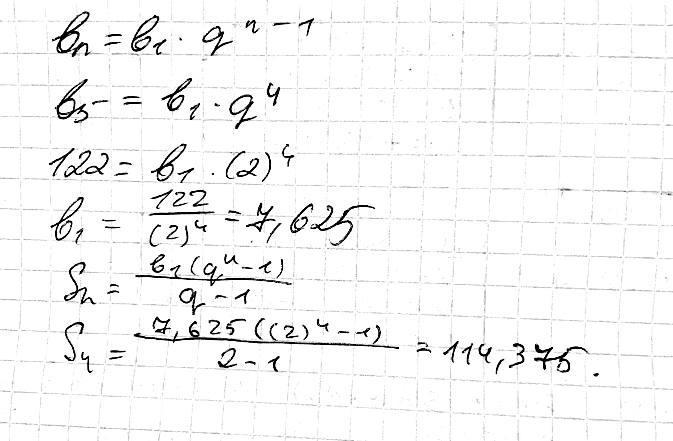 bₙ = b₁ · qⁿ⁻¹
b₅ = b₁ · q⁴
122 = b₁ · (2)⁴
b₁ = 122/(2)⁴ = 7,625
Sₙ = b₁(qⁿ-1)/q-1
S₄ = 7,625((2)⁴-1)/2-1 = 114,375.